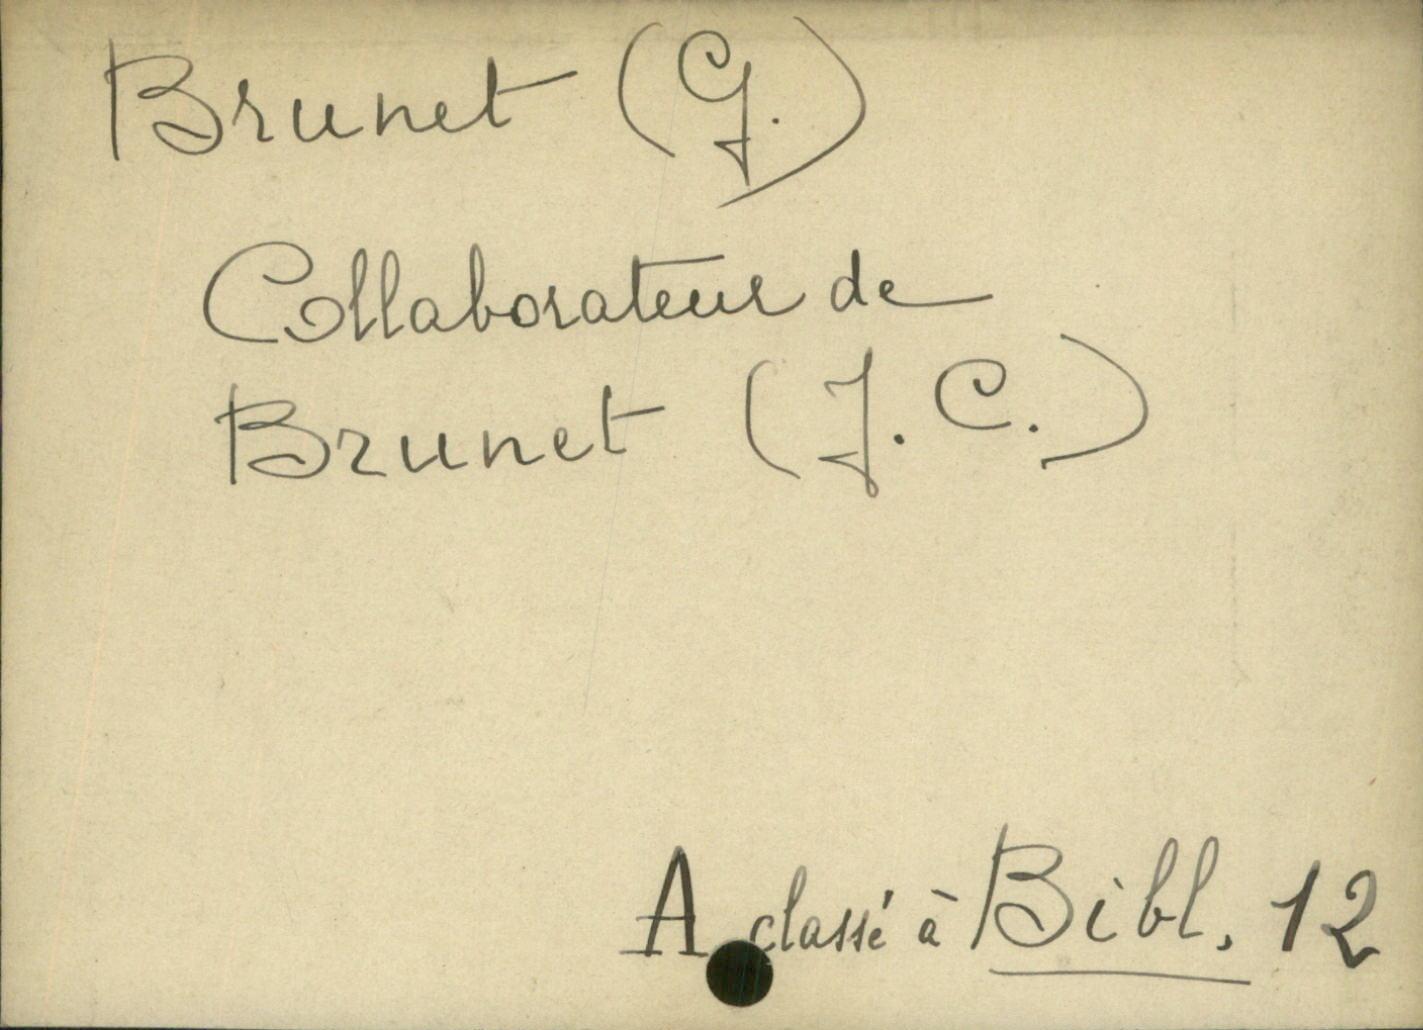 Brunet (G.)
Collaborateur de
Brunet (J. C.)
A classé à Bibl. 12